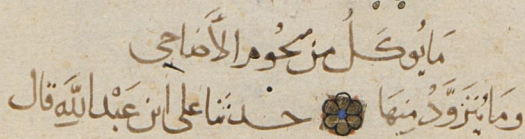 مَا يُوكَلُ مِنْ لحُومِ الأَضَاحِي
وَمَا يُتَزَوَّدُ مِنهَا حدثَنا علي ابن عَبْد اللَّهِ قال